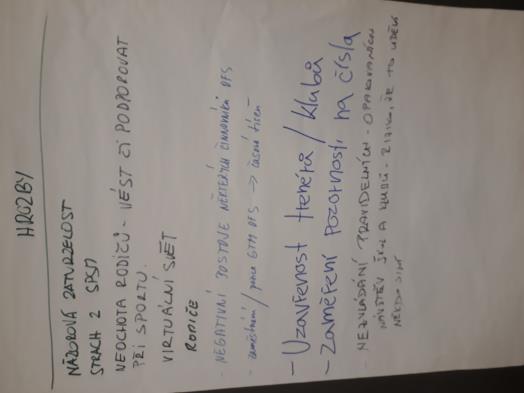 HROZBY
NÁZOROVÁ ZATVRZELOST
STRACH Z SPSD
NEOCHOTA RODIČŮ - VÉST ČI PODPOROVAT
PŘI SPORTU.
VIRTUÁLNÍ SVĚT
RODIČE
- NEGATIVNÍ POSTOJE NĚKTERÝCH ČINOVNÍKŮ OFS
- zaměstnání / práce GTM OFS → časová tíseň
- Uzavřenost trenérů / klubů
- Zaměření pozornosti na čísla
- NEZVLÁDÁNÍ PRAVIDELNÝCH - OPAKOVANÝCH
NÁVŠTĚV ŠKOL A KLUBŮ - RIZIKO, ŽE TO UDĚLÁ
NĚKDO JINÝ